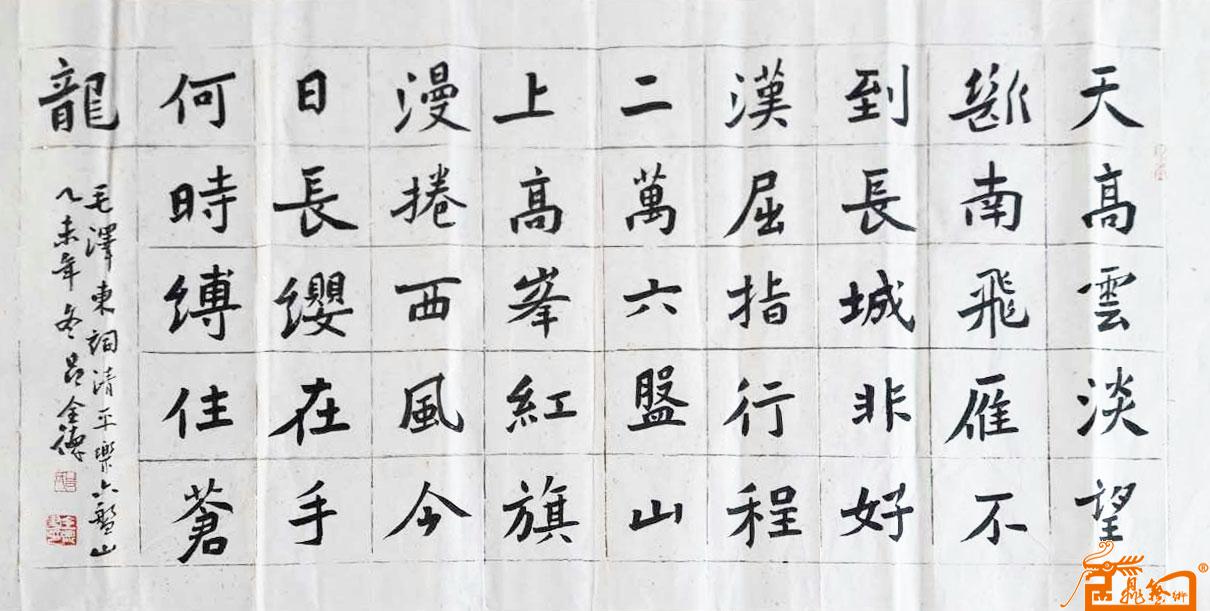 天高雲淡望
斷南飛雁不
到長城非好
漢屈指行程
二萬六盤山
上高峯紅旗
漫捲西風今
日長纓在手
何時縛住蒼
龍
毛澤東詞清平樂六盤山
乙未年冬吕全德